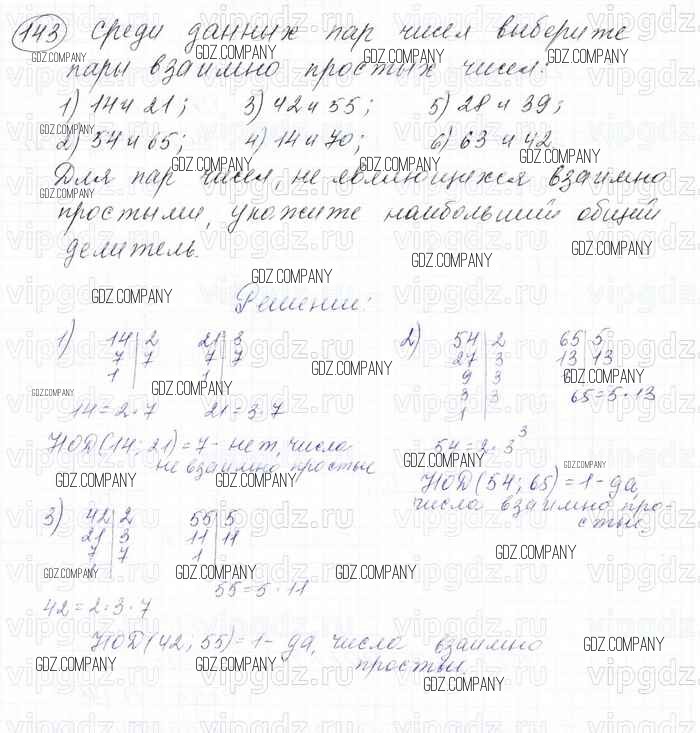 143 Среди данных пар чисел выберите
пары взаимно простых чисел:
1) 14 и 21; 3) 42 и 55; 5) 28 и 39;
2) 54 и 65; 4) 14 и 70; 6) 63 и 42
Для пар чисел, не являющихся взаимно
простыми, укажите наибольший общий
делитель.
Решение:
1) 14 | 2 21 | 3
7 | 7 7 | 7
1 | 1 |
14 = 2 · 7 21 = 3 · 7
НОД (14; 21) = 7 - нет, числа
не взаимно простые
2) 54 | 2 65 | 5
27 | 3 13 | 13
9 | 3
3 | 3 65 = 5 · 13
1 |
54 = 2 · 3³
НОД (54; 65) = 1 - да,
числа взаимно про-
стые.
3) 42 | 2 55 | 5
21 | 3 11 | 11
7 | 7 1 |
42 = 2 · 3 · 7 55 = 5 · 11
НОД (42; 55) = 1 - да, числа взаимно
простые.
GDZ.COMPANY
vipgdz.ru